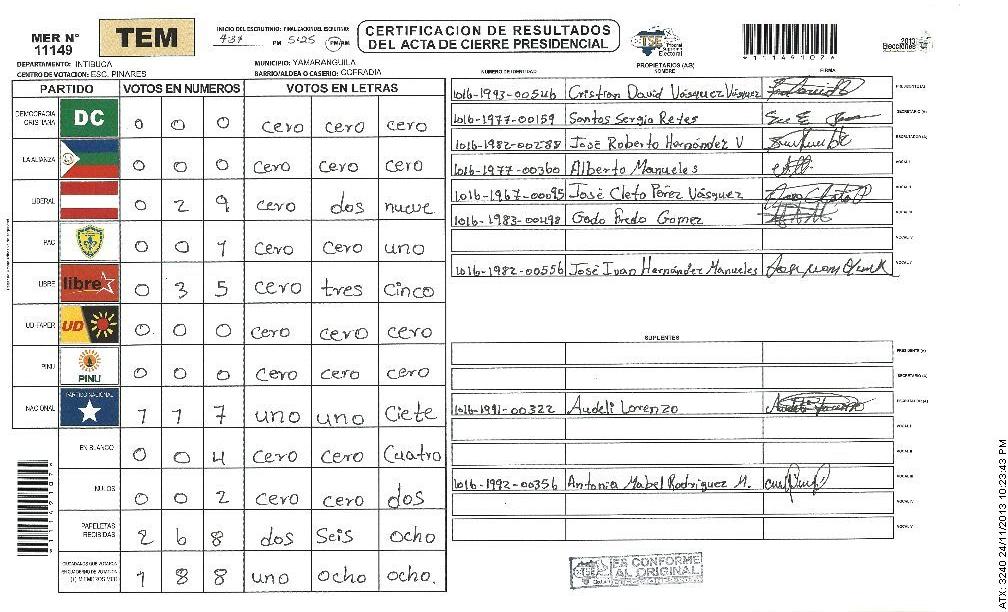 MER N° 11149
TEM
INICIO DEL ESCRUTINIO: FINALIZACION DEL ESCRUTINIO:
4:34 PM 5:25 PM/AM
CERTIFICACION DE RESULTADOS
DEL ACTA DE CIERRE PRESIDENCIAL
TSE Tribunal Supremo Electoral
2013 Elecciones
1114910?
DEPARTAMENTO: INTIBUCA
MUNICIPIO: YAMARANGUILA
CENTRO DE VOTACION: ESC. PINARES
BARRIO/ALDEA O CASERIO: COFRADIA
PARTIDO VOTOS EN NUMEROS VOTOS EN LETRAS
DEMOCRACIA CRISTIANA DC 0 0 0 cero cero cero
LA ALIANZA 0 0 0 cero cero cero
LIBERAL 0 2 9 cero dos nueve
PAC 0 0 1 cero cero uno
LIBRE libre 0 3 5 cero tres cinco
UD-FAPER UD 0 0 0 cero cero cero
PINU PINU 0 0 0 cero cero cero
NACIONAL PARTIDO NACIONAL 1 1 7 uno uno Ciete
EN BLANCO 0 0 4 cero cero Cuatro
NULOS 0 0 2 cero cero dos
PAPELETAS RECIBIDAS 2 6 8 dos Seis ocho
1 8 8 uno ocho ocho.
PROPIETARIOS (AS)
NUMERO DE IDENTIDAD NOMBRE FIRMA
1016-1993-00546 Cristian David Vásquez Vásquez PRESIDENTE (A)
1016-1977-00159 Santos Sergio Reyes SECRETARIO (A)
1016-1982-00288 José Roberto Hernández V ESCRUTADOR (A)
1016-1977-00360 Alberto Manueles VOCAL I
1016-1967-00095 José Cleto Pérez Vásquez VOCAL II
1016-1983-00498 Godo Predo Gomez VOCAL III
VOCAL IV
1016-1982-00556 José Ivan Hernández Manueles VOCAL V
SUPLENTES
PRESIDENTE (A)
SECRETARIO (A)
1016-1991-00322 Audeli Lorenzo ESCRUTADOR (A)
VOCAL I
VOCAL II
1016-1992-00356 Antonia Mabel Rodriguez M. VOCAL III
VOCAL IV
VOCAL V
ES CONFORME
AL ORIGINAL
ATX: 3240 24/11/2013 10:23:43 PM